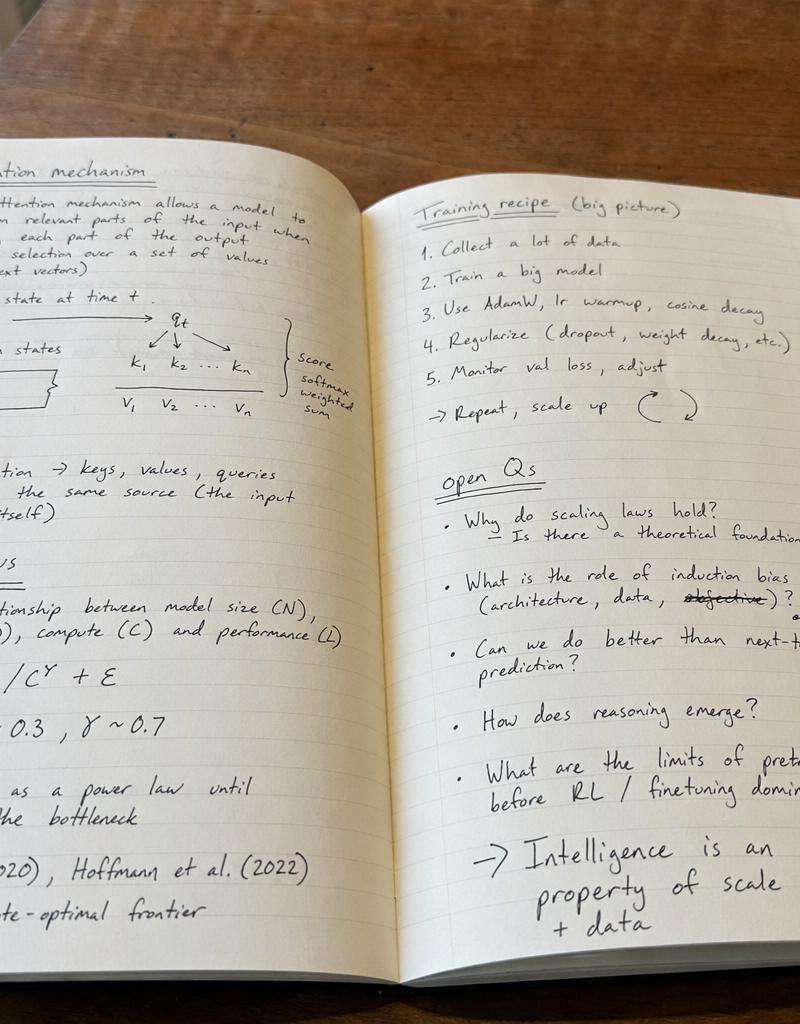 tion mechanism
ttention mechanism allows a model to
n relevant parts of the input when
each part of the output
selection over a set of values
ext vectors)
state at time t.
qt
n states
k1 k2 ... kn
V1 V2 ... Vn
score
softmax
weighted
sum
tion → keys, values, queries
the same source (the input
tself)
ws
tionship between model size (N),
), compute (C) and performance (L)
/C^γ + ε
0.3, γ ~ 0.7
as a power law until
the bottleneck
020), Hoffmann et al. (2022)
te-optimal frontier
Training recipe (big picture)
1. Collect a lot of data
2. Train a big model
3. Use AdamW, lr warmup, cosine decay
4. Regularize (dropout, weight decay, etc.)
5. Monitor val loss, adjust
→ Repeat, scale up
open Qs
• Why do scaling laws hold?
– Is there a theoretical foundation
• What is the role of induction bias
(architecture, data, objective)?
• Can we do better than next-t
prediction?
• How does reasoning emerge?
• What are the limits of pretr
before RL / finetuning domin
→ Intelligence is an
property of scale
+ data